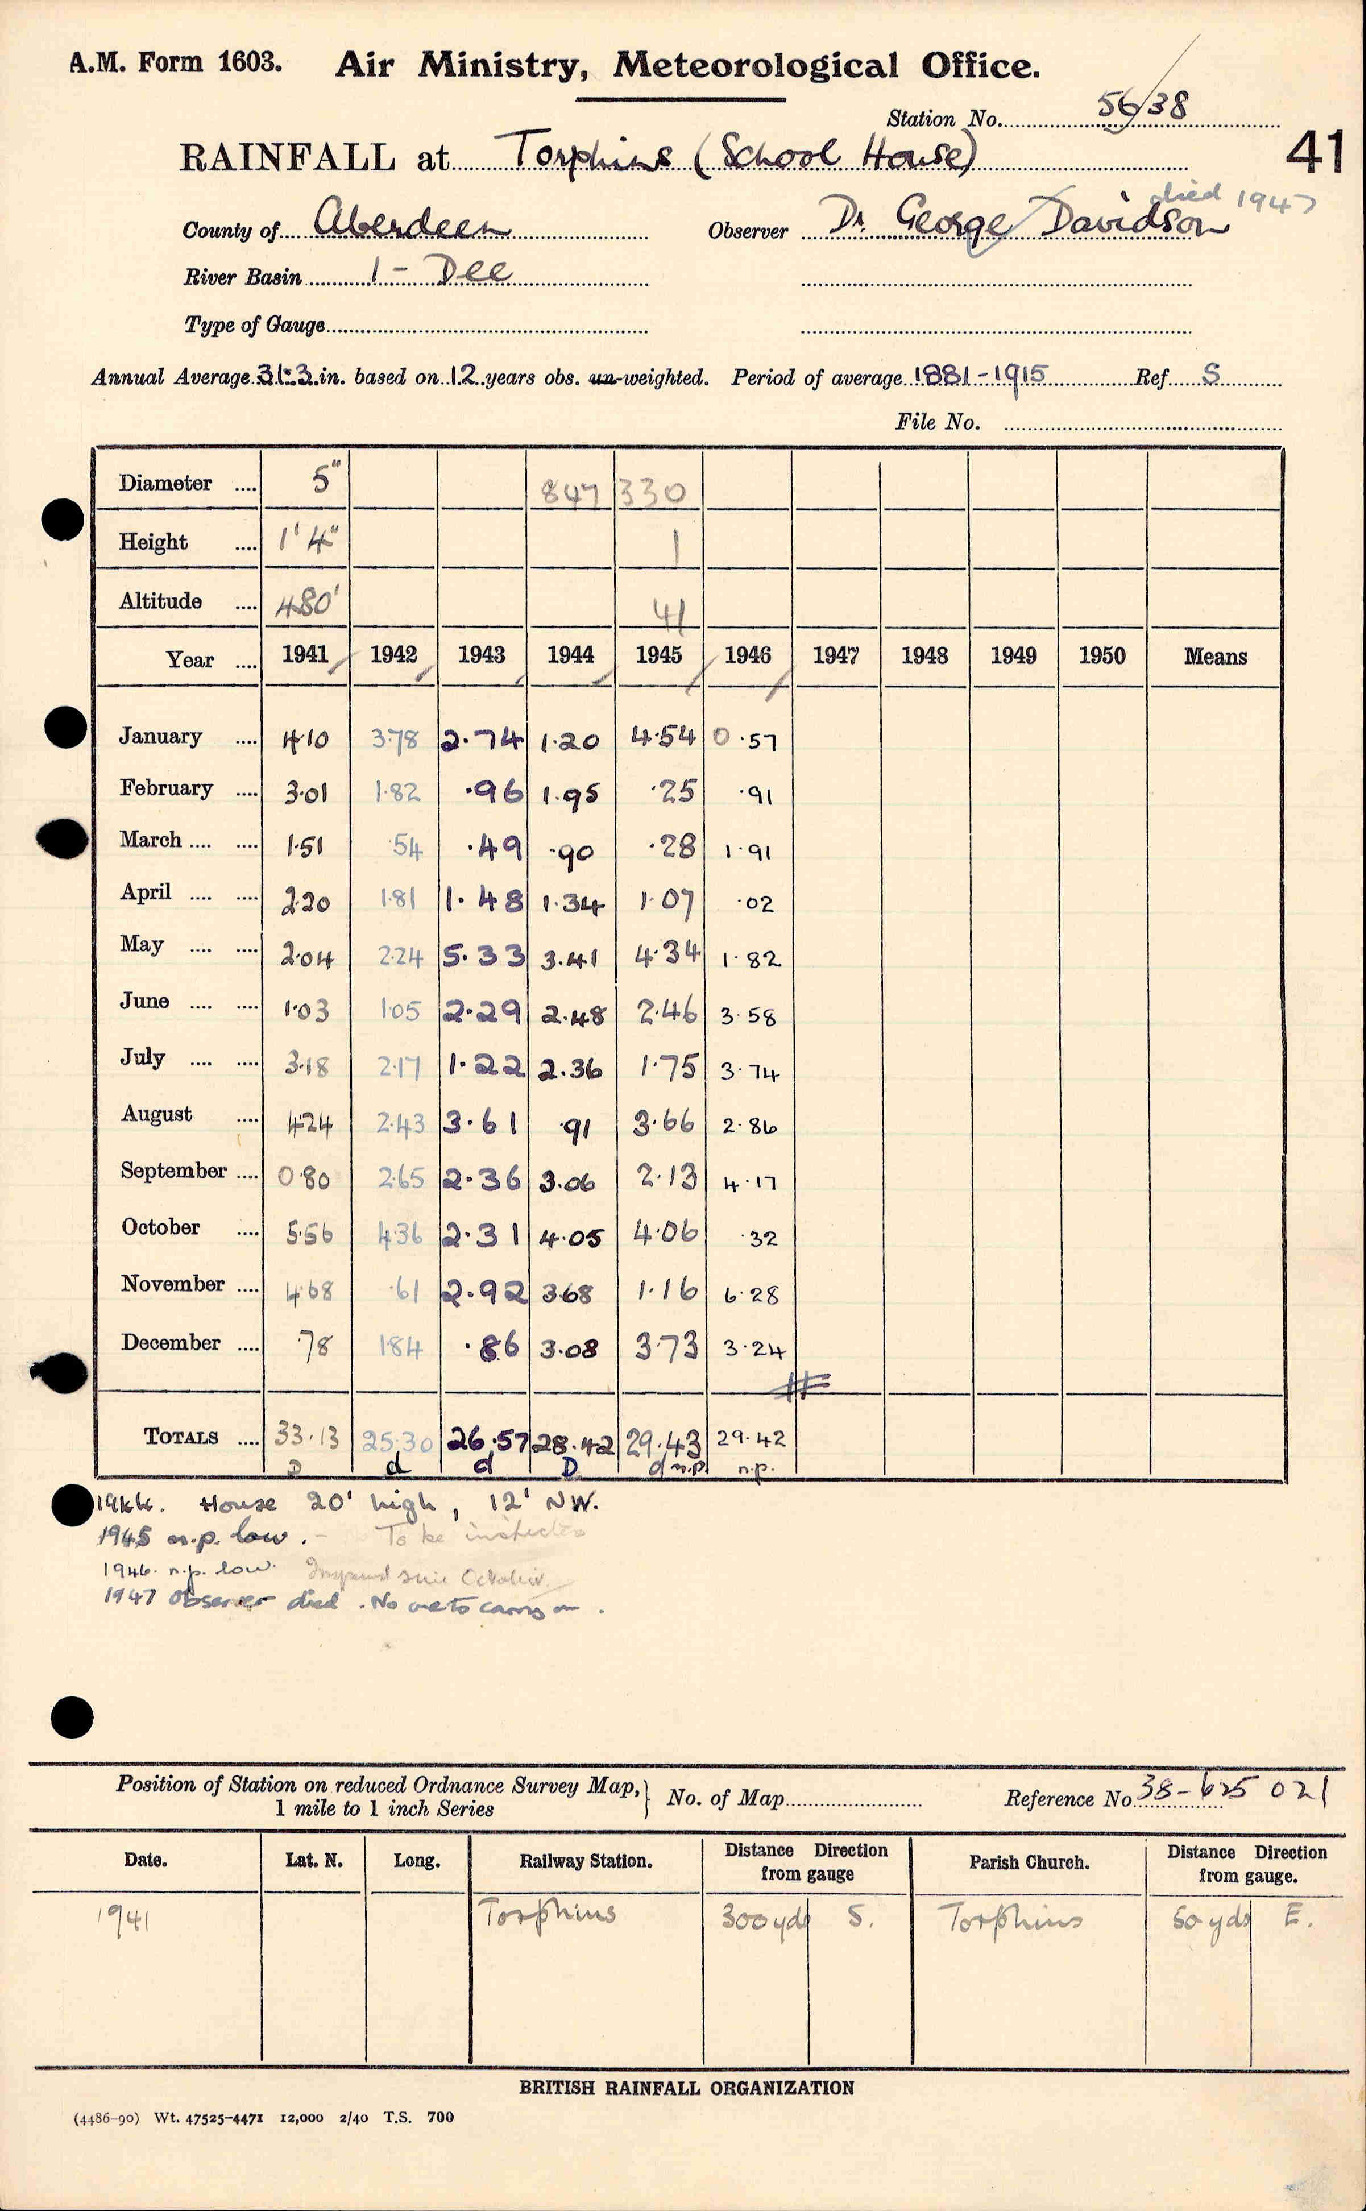 A.M. Form 1603. Air Ministry, Meteorological Office.
Station No. 56/38
RAINFALL at Torphins (School House) 41
died 1947
County of Aberdeen Observer Dr. George Davidson
River Basin 1 - Dee
Type of Gauge
Annual Average 31.3 in. based on 12 years obs. un-weighted. Period of average 1881-1915 Ref S
File No.
Diameter .... 5" 847 330
Height .... 1' 4" 1
Altitude .... 480' 41
Year .... 1941 1942 1943 1944 1945 1946 1947 1948 1949 1950 Means
January .... 4.10 3.78 2.74 1.20 4.54 0.57
February .... 3.01 1.82 .96 1.95 .25 .91
March .... .... 1.51 .54 .49 .90 .28 1.91
April .... .... 2.20 1.81 1.48 1.34 1.07 .02
May .... .... 2.04 2.24 5.33 3.41 4.34 1.82
June .... .... 1.03 1.05 2.29 2.48 2.46 3.58
July .... .... 3.18 2.17 1.22 2.36 1.75 3.74
August .... 4.24 2.43 3.61 .91 3.66 2.86
September .... 0.80 2.65 2.36 3.06 2.13 4.17
October .... 5.56 4.36 2.31 4.05 4.06 .32
November .... 4.68 .61 2.92 3.68 1.16 6.28
December .... .78 1.84 .86 3.08 3.73 3.24
TOTALS .... 33.13 25.30 26.57 28.42 29.43 29.42
D d d D d n.p. n.p.
1944. House 20' high, 12' NW.
1945 n.p. low. - To be inspected
1946. n.p. low. October
1947 Observer died. No one to carry on.
Position of Station on reduced Ordnance Survey Map, } No. of Map Reference No 38-625 021
1 mile to 1 inch Series
Date. Lat. N. Long. Railway Station. Distance from gauge Direction Parish Church. Distance from gauge. Direction
1941 Torphins 300 yds S. Torphins 50 yds E.
BRITISH RAINFALL ORGANIZATION
(4486-90) Wt. 47525-4471 12,000 2/40 T.S. 700